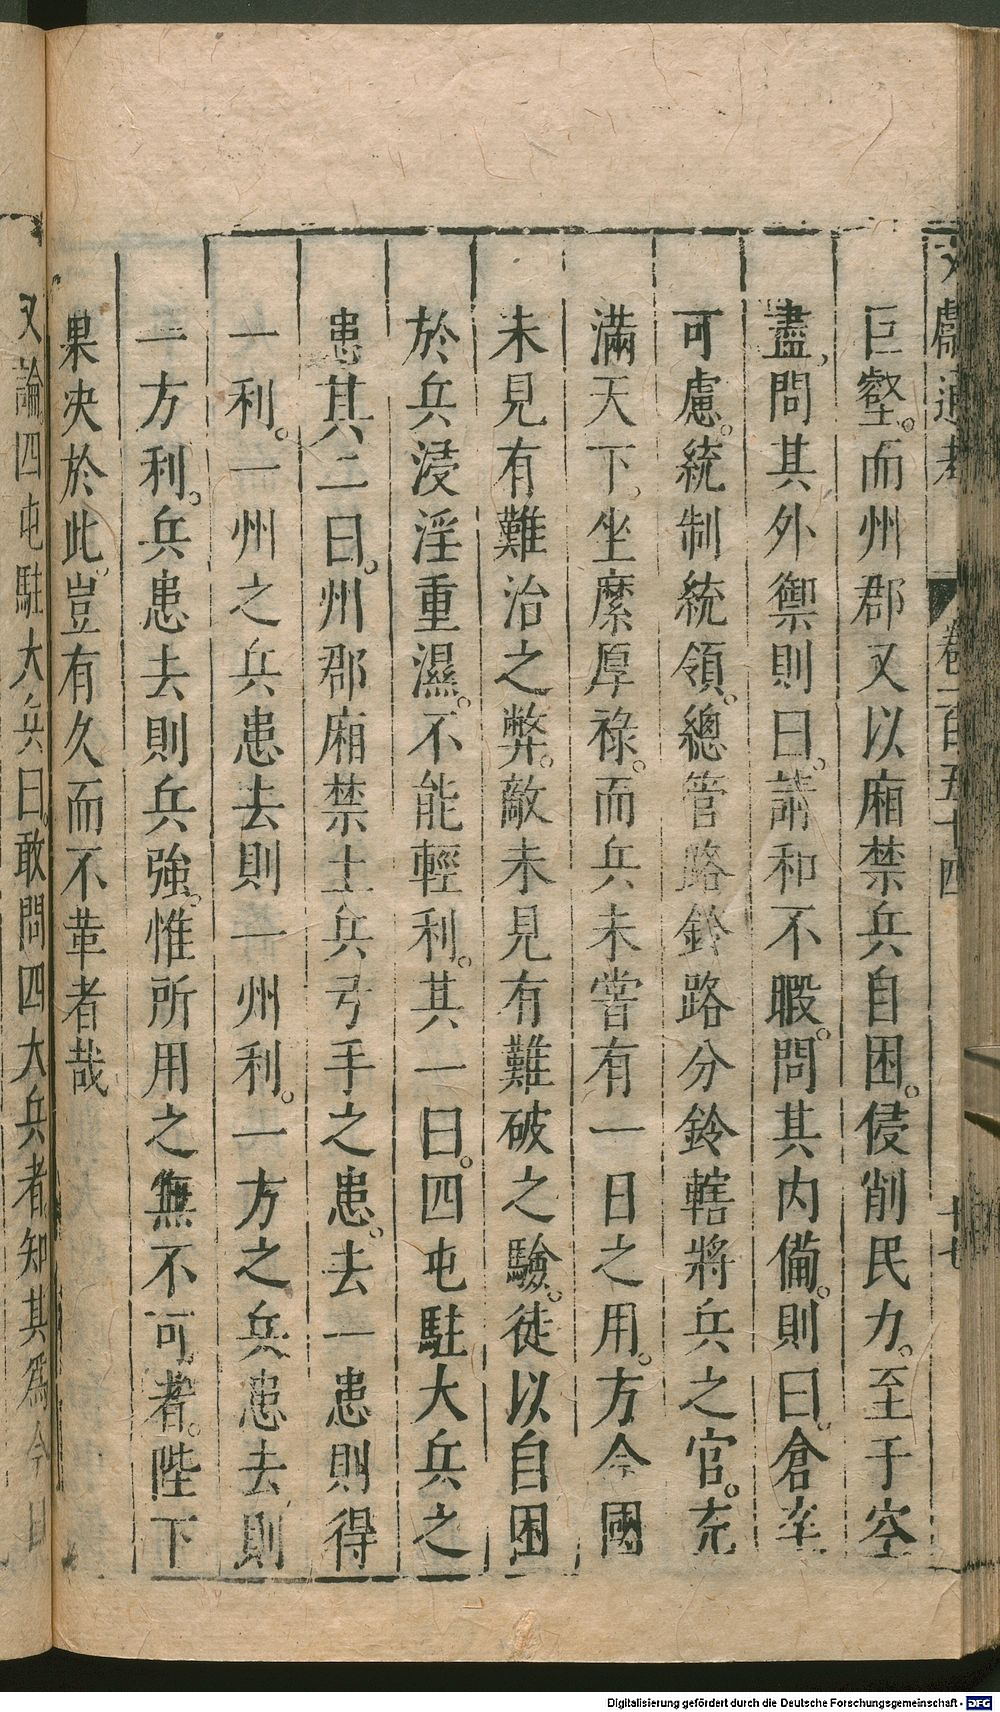 文獻通考 卷一百五十四 十七
巨壑。而州郡又以廂禁兵自困。侵削民力。至于空
盡。問其外禦則曰。請和不暇。問其內備。則曰。倉卒
可慮。統制統領。總管路鈐路分鈐轄將兵之官。充
滿天下。坐縻厚祿。而兵未嘗有一日之用。方今國
未見有難治之弊。敵未見有難破之驗。徒以自困
於兵浸淫重濕。不能輕利。其一曰。四屯駐大兵之
患其二曰。州郡廂禁士兵弓手之患。去一患則得
一利。一州之兵患去則一州利。一方之兵患去則
一方利。兵患去則兵強。惟所用之無不可者。陛下
果决於此。豈有久而不革者哉
又論四屯駐大兵曰。敢問四大兵者知其爲今日
Digitalisierung gefördert durch die Deutsche Forschungsgemeinschaft - DFG